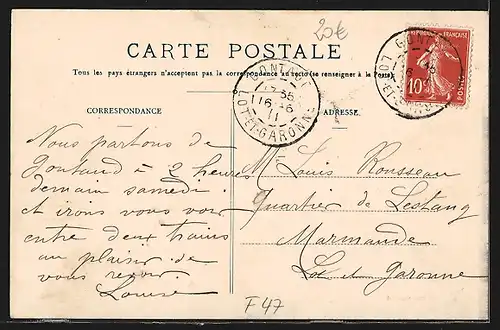 20€
CARTE POSTALE
Tous les pays étrangers n'acceptent pas la correspondance au recto (se renseigner à la Poste)
CORRESPONDANCE
ADRESSE
GONTAUD
17 35
16 - 6
11
LOT-ET-GARONNE
RÉPUBLIQUE FRANÇAISE
10
POSTES
Nous partons de
Gontaud à 2 heures
demain samedi
et irons vous voir
entre deux trains
au plaisir de
vous revoir.
Louise
M Louis Rousseau
Quartier de Lestang
Marmande
Lot et Garonne
F 47